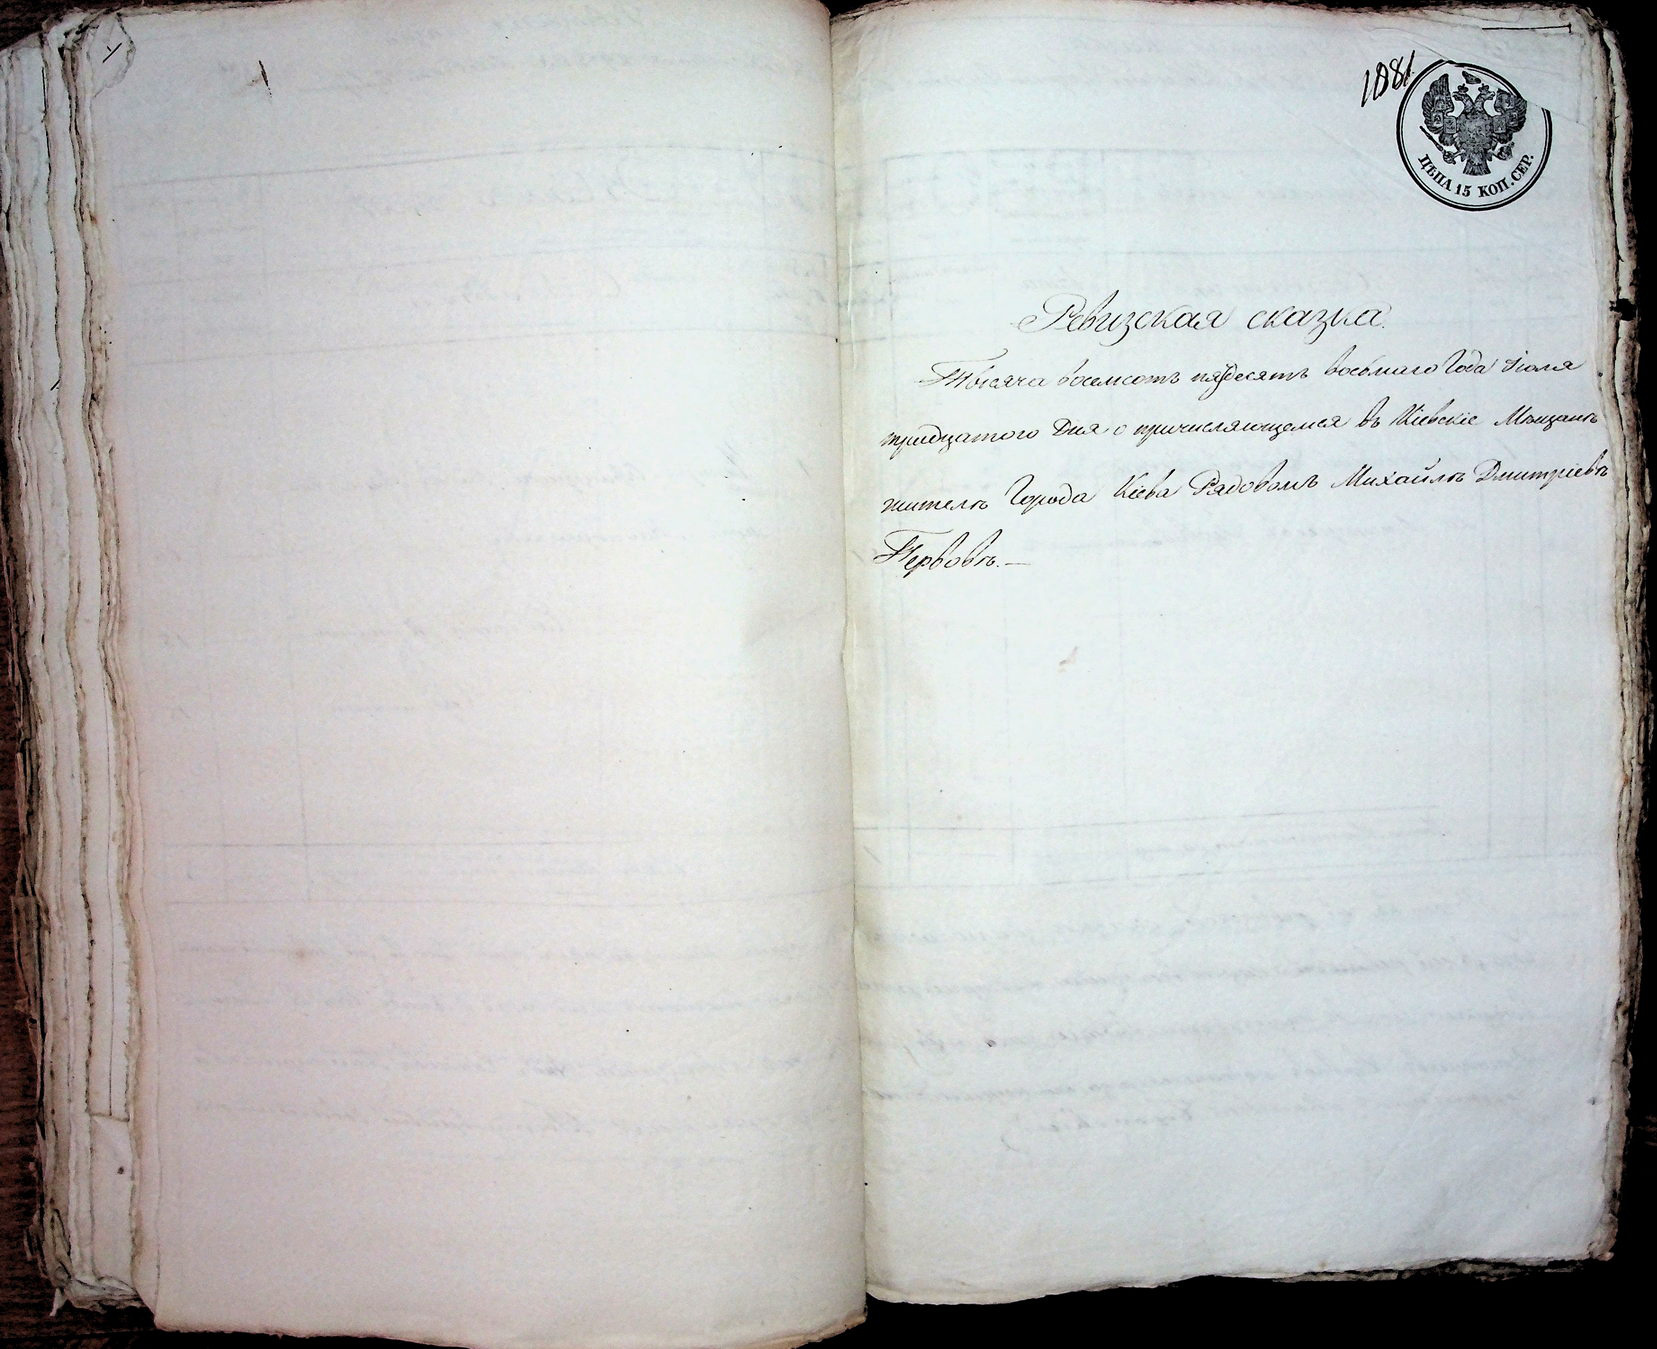 1081
ЦѢНА 15 КОП. СЕР.
Ревизская сказка.
Тысяча восемсотъ пядесятъ восьмаго Года Іюля
тридцатого Дня о причисляющемся въ Кіевскіе Мѣщанѣ
жителѣ Города Кіева Рядовомъ Михайлѣ Дмитріевѣ
Первовѣ.—